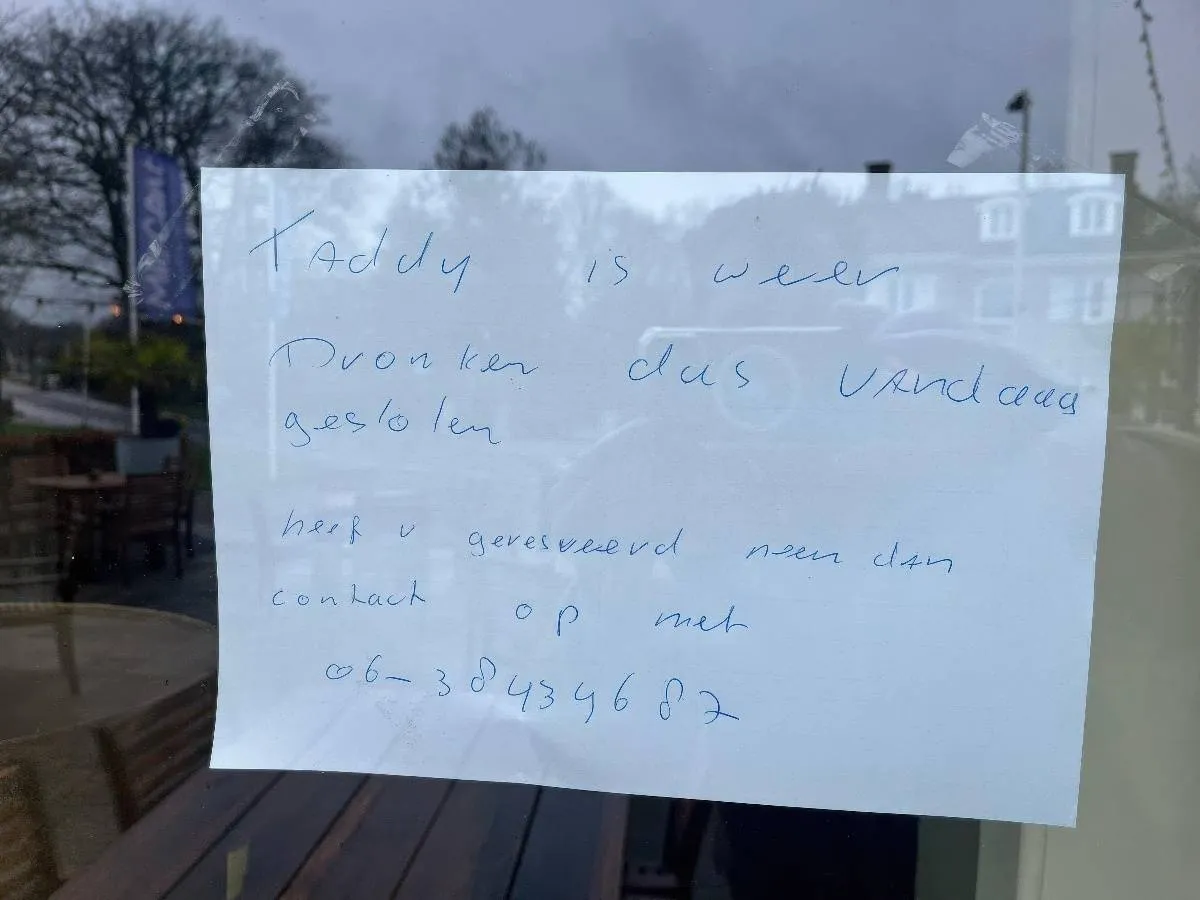 Taddy is weer
Dronken dus vandaag
gesloten
heeft u geresveerd neem dan
contact op met
06-38434687